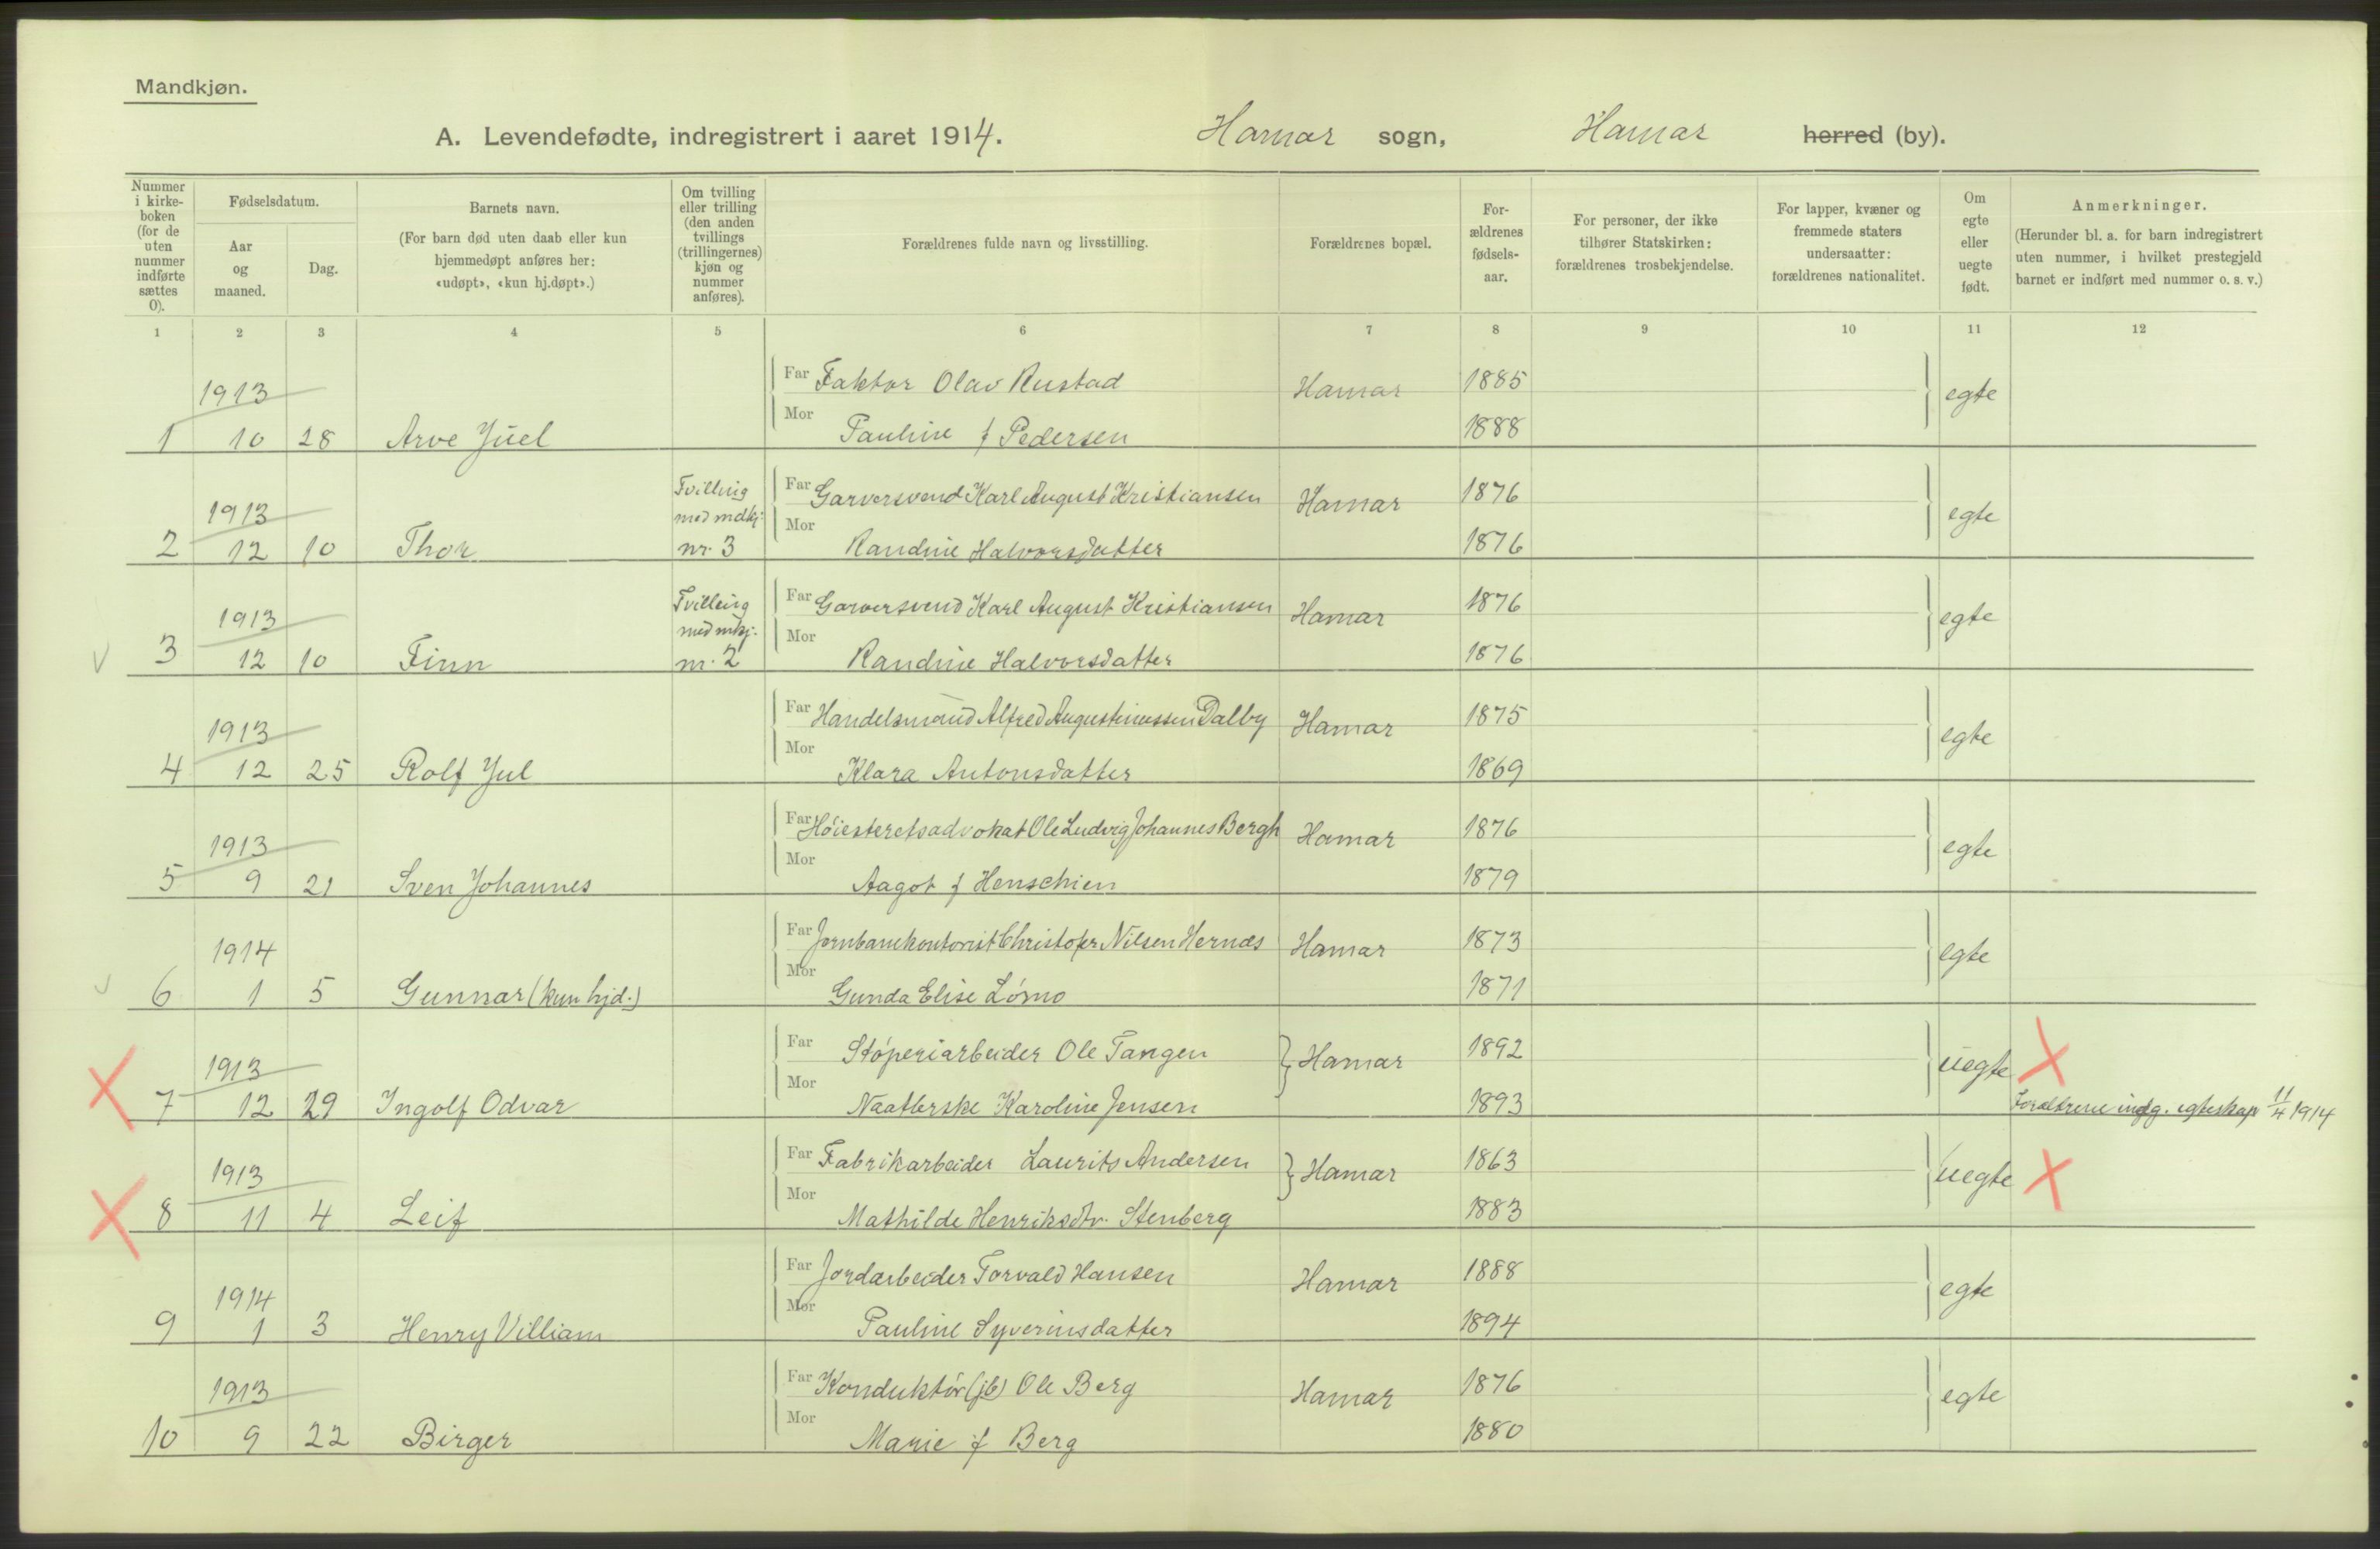 Mandkjøn.
A. Levendefødte, indregistrert i aaret 1914. Hamar sogn, Hamar herred (by).
Nummer i kirke-boken (for de uten nummer indførte sættes 0).
Fødselsdatum.
Aar og maaned.
Dag.
Barnets navn.
(For barn død uten daab eller kun hjemmedøpt anføres her: «udøpt», «kun hj.døpt».)
Om tvilling eller trilling (den anden tvillings (trillingernes) kjøn og nummer anføres).
Forældrenes fulde navn og livsstilling.
Forældrenes bopæl.
For-ældrenes fødsels-aar.
For personer, der ikke tilhører Statskirken: forældrenes trosbekjendelse.
For lapper, kvæner og fremmede staters undersaatter: forældrenes nationalitet.
Om egte eller uegte født.
Anmerkninger.
(Herunder bl. a. for barn indregistrert uten nummer, i hvilket prestegjeld barnet er indført med nummer o. s. v.)
1 2 3 4 5 6 7 8 9 10 11 12
1913 Far Faktor Olav Rustad Hamar 1885 egte
1 10 28 Arve Juel Mor Pauline f Pedersen 1888
1913 Tvilling med mdkj: Far Garversvend Karl August Kristiansen Hamar 1876 egte
2 12 10 Thor nr. 3 Mor Randine Halvorsdatter 1876
1913 Tvilling med mkj. Far Garversvend Karl August Kristiansen Hamar 1876 egte
3 12 10 Finn nr. 2 Mor Randine Halvorsdatter 1876
1913 Far Handelsmand Alfred Augustinussen Dalby Hamar 1875 egte
4 12 25 Rolf Jul Mor Klara Antonsdatter 1869
1913 Far Høiesteretsadvokat Ole Ludvig Johannes Bergh Hamar 1876 egte
5 9 21 Sven Johannes Mor Aagot f Henschien 1879
1914 Far Jernbanekontorist Christofer Nilsen Hernæs Hamar 1873 egte
6 1 5 Gunnar (kun hjd.) Mor Gunda Elise Lømo 1871
1913 Far Støperiarbeider Ole Tangen Hamar 1892 uegte
7 12 29 Ingolf Odvar Mor Naatlerske Karoline Jensen 1893 Forældrene indg. egteskap 11/4 1914
1913 Far Fabrikarbeider Laurits Andersen Hamar 1863 uegte
8 11 4 Leif Mor Mathilde Henriksdtr. Stenberg 1883
1914 Far Jordarbeider Torvald Hansen Hamar 1888 egte
9 1 3 Henry Villiam Mor Pauline Syverinsdatter 1894
1913 Far Konduktør (jb) Ole Berg Hamar 1876 egte
10 9 22 Birger Mor Marie f Berg 1880